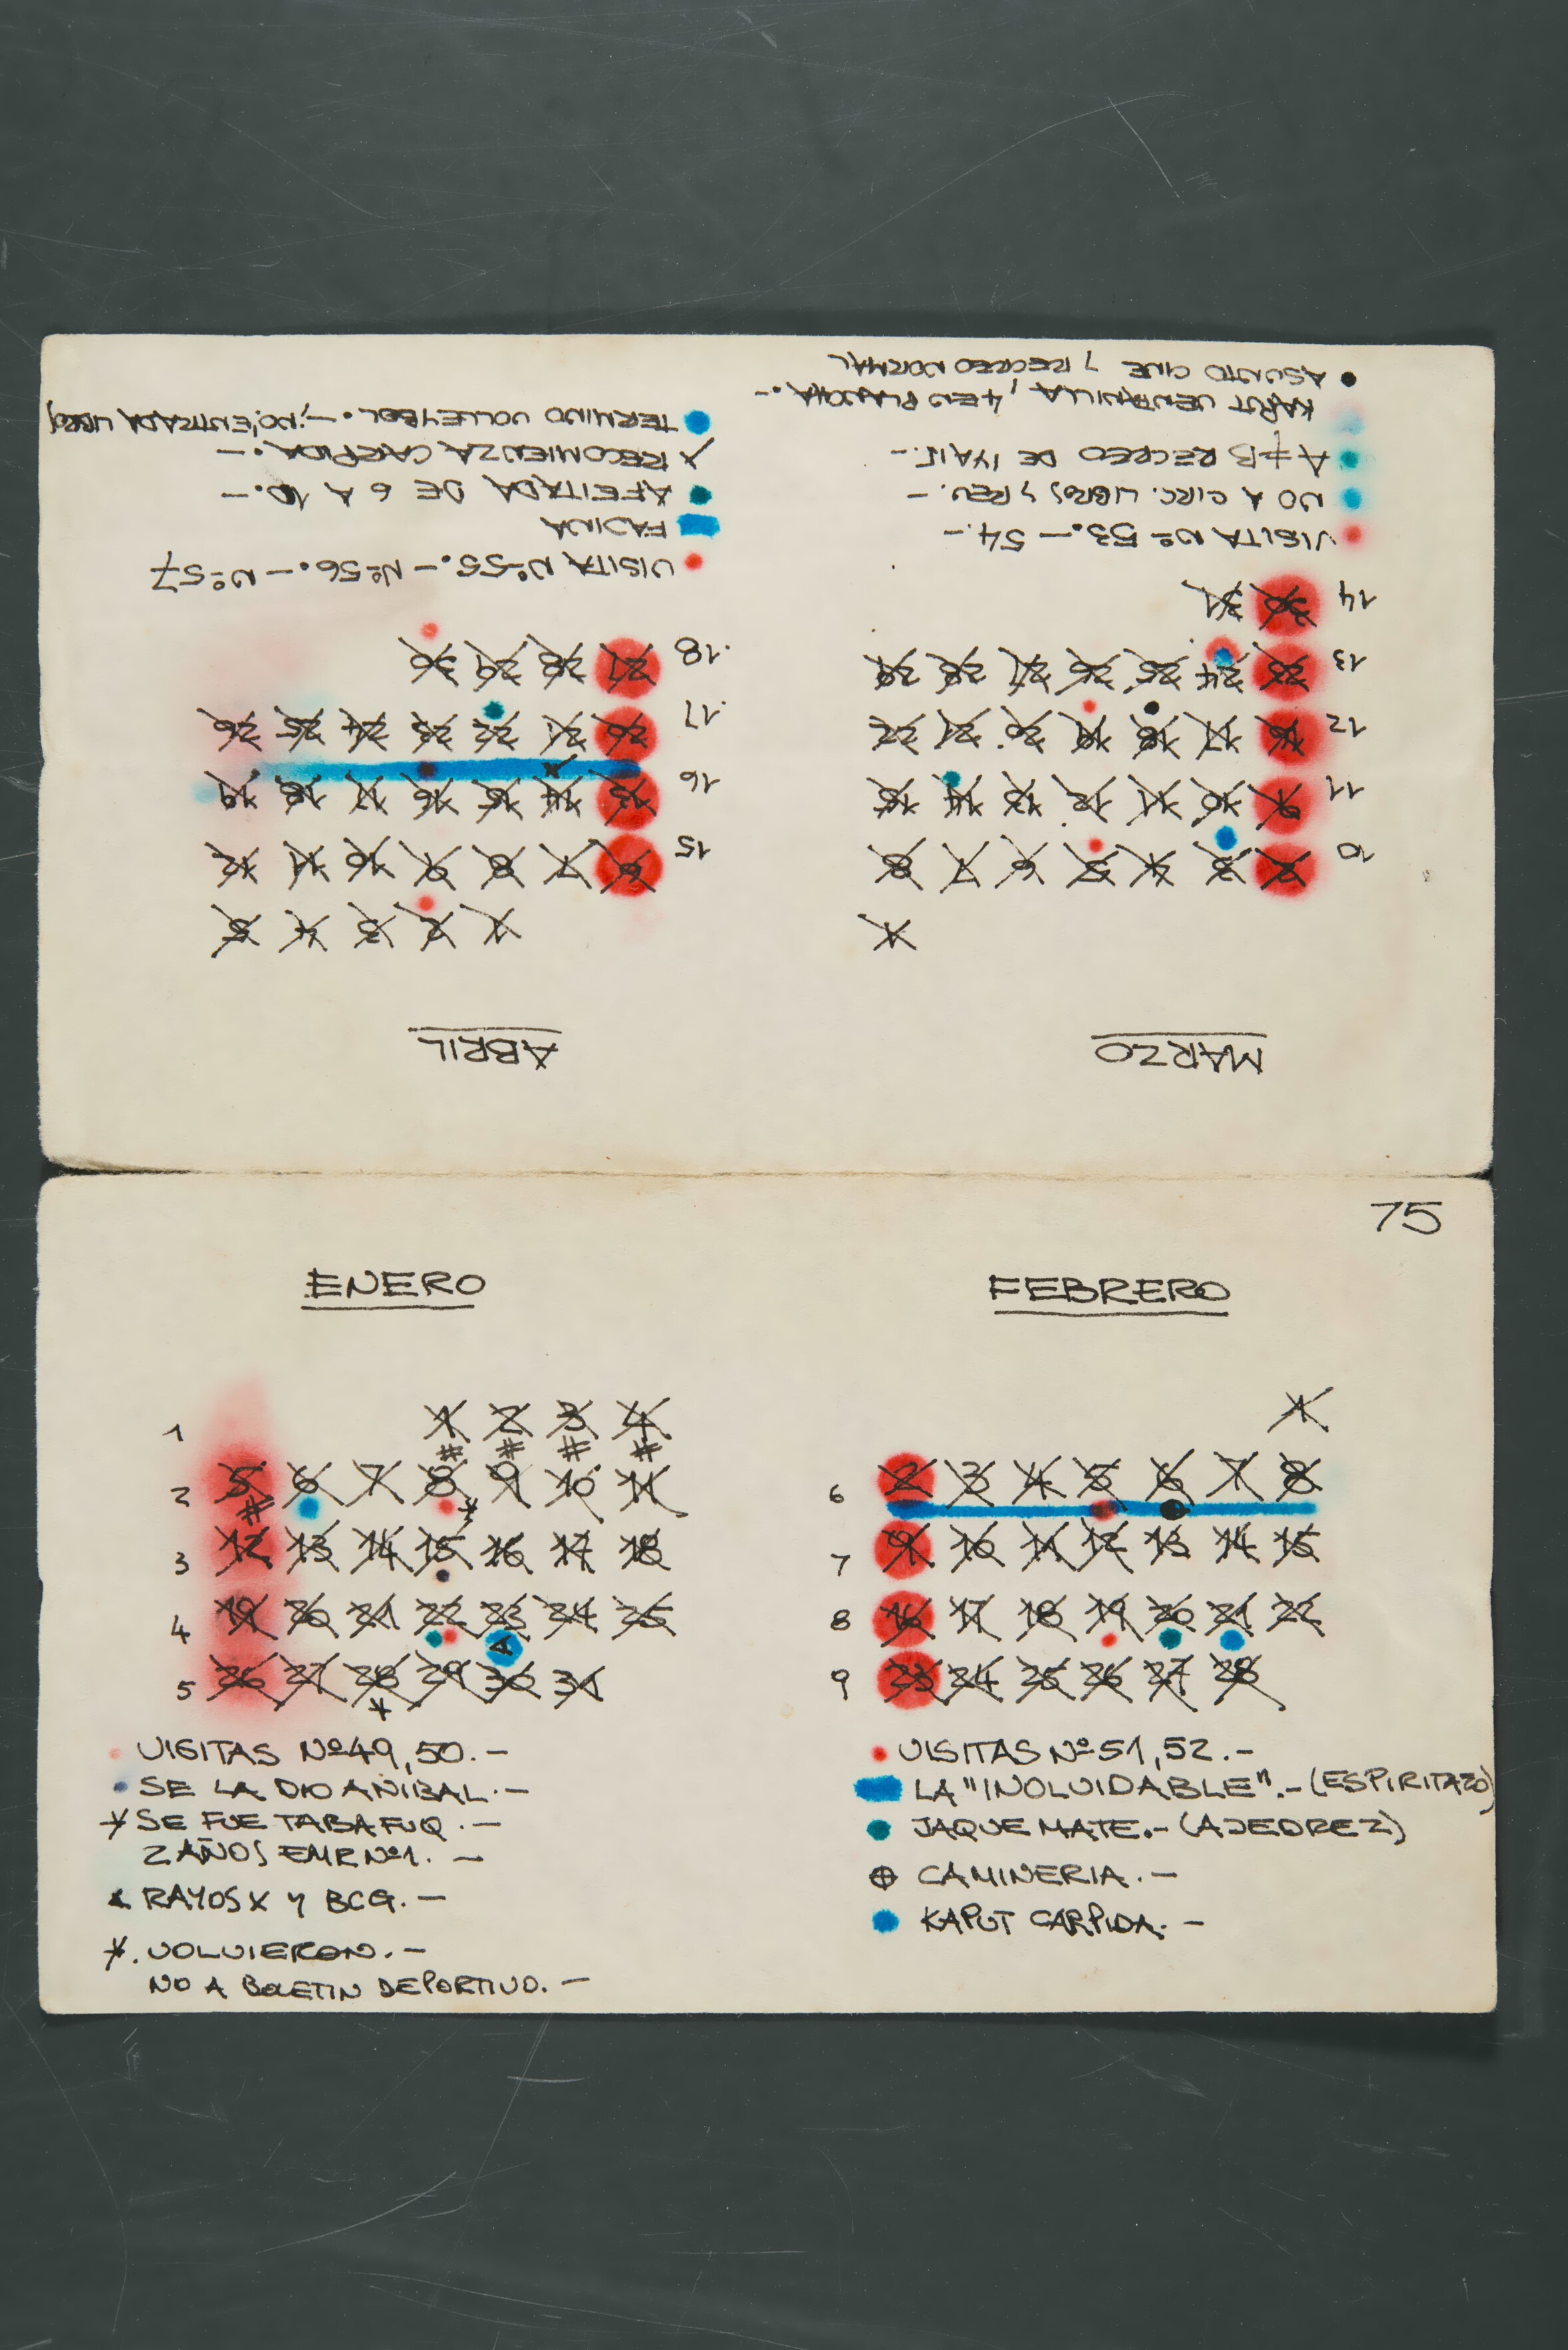 75
ENERO
1 1 2 3 4
# # # #
2 5 6 7 8 9 10 11
# *
3 12 13 14 15 16 17 18
4 19 20 21 22 23 24 25
A
5 26 27 28 29 30 31
*
VISITAS Nº 49, 50.-
SE LA DIO ANIBAL.-
* SE FUE TABA FUQ.-
2 AÑOS EMR Nº1.-
RAYOS X Y BCG.-
*. VOLVIERON.-
NO A BOLETIN DEPORTIVO.-
FEBRERO
1
6 2 3 4 5 6 7 8
7 9 10 11 12 13 14 15
8 16 17 18 19 20 21 22
9 23 24 25 26 27 28
VISITAS Nº 51, 52.-
LA "INOLVIDABLE".- (ESPIRITAZO)
JAQUE MATE.- (AJEDREZ)
⊕ CAMINERIA.-
KAPUT CARPIDA.-
MARZO
1
10 2 3 4 5 6 7 8
11 9 10 11 12 13 14 15
12 16 17 18 19 20 21 22
13 23 24 25 26 27 28 29
14 30 31
VISITA Nº 53.- 54.-
NO A CIRC. LIBROS Y REV.-
A ≠ B RECREO DE
KAPUT VENTANILLA, 4 EN PLANCHA.-
ASUNTO CINE Y RECREO NORMAL
ABRIL
1 2 3 4 5
15 6 7 8 9 10 11 12
16 13 14 15 16 17 18 19
17 20 21 22 23 24 25 26
18 27 28 29 30
VISITA Nº 55.- Nº 56.- Nº 57
FAJINA
AFEITADA DE 6 A 10.-
X RECOMIENZA CARPIDA.-
TERMINO VOLLEYBOL.- NO, ENTRADA LIBROS